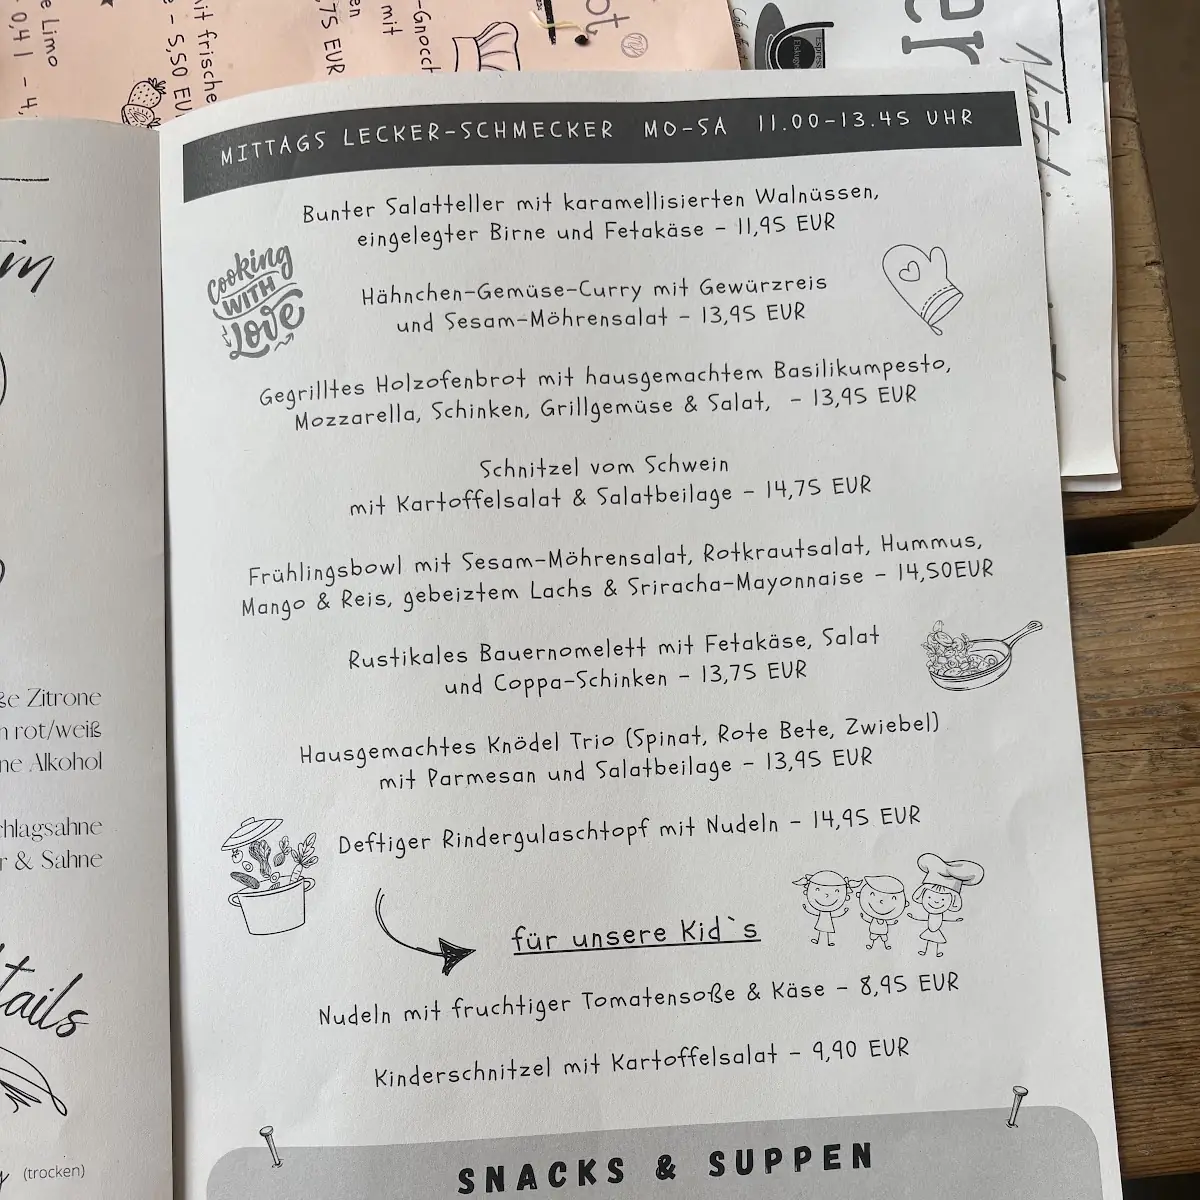 e Limo
0,4 l - 4,
it frische
e - 5,50 EU
,75 EUR
en
mit
-Gnocch
ot
Espresso
er
MITTAGS LECKER-SCHMECKER MO-SA 11.00-13.45 UHR
Bunter Salatteller mit karamellisierten Walnüssen,
eingelegter Birne und Fetakäse - 11,95 EUR
cooking
WITH
Love
Hähnchen-Gemüse-Curry mit Gewürzreis
und Sesam-Möhrensalat - 13,95 EUR
Gegrilltes Holzofenbrot mit hausgemachtem Basilikumpesto,
Mozzarella, Schinken, Grillgemüse & Salat, - 13,95 EUR
Schnitzel vom Schwein
mit Kartoffelsalat & Salatbeilage - 14,75 EUR
Frühlingsbowl mit Sesam-Möhrensalat, Rotkrautsalat, Hummus,
Mango & Reis, gebeiztem Lachs & Sriracha-Mayonnaise - 14,50EUR
Rustikales Bauernomelett mit Fetakäse, Salat
und Coppa-Schinken - 13,75 EUR
Hausgemachtes Knödel Trio (Spinat, Rote Bete, Zwiebel)
mit Parmesan und Salatbeilage - 13,95 EUR
Deftiger Rindergulaschtopf mit Nudeln - 14,95 EUR
für unsere Kid`s
Nudeln mit fruchtiger Tomatensoße & Käse - 8,95 EUR
Kinderschnitzel mit Kartoffelsalat - 9,90 EUR
SNACKS & SUPPEN
ße Zitrone
n rot/weiß
ne Alkohol
chlagsahne
r & Sahne
tails
(trocken)